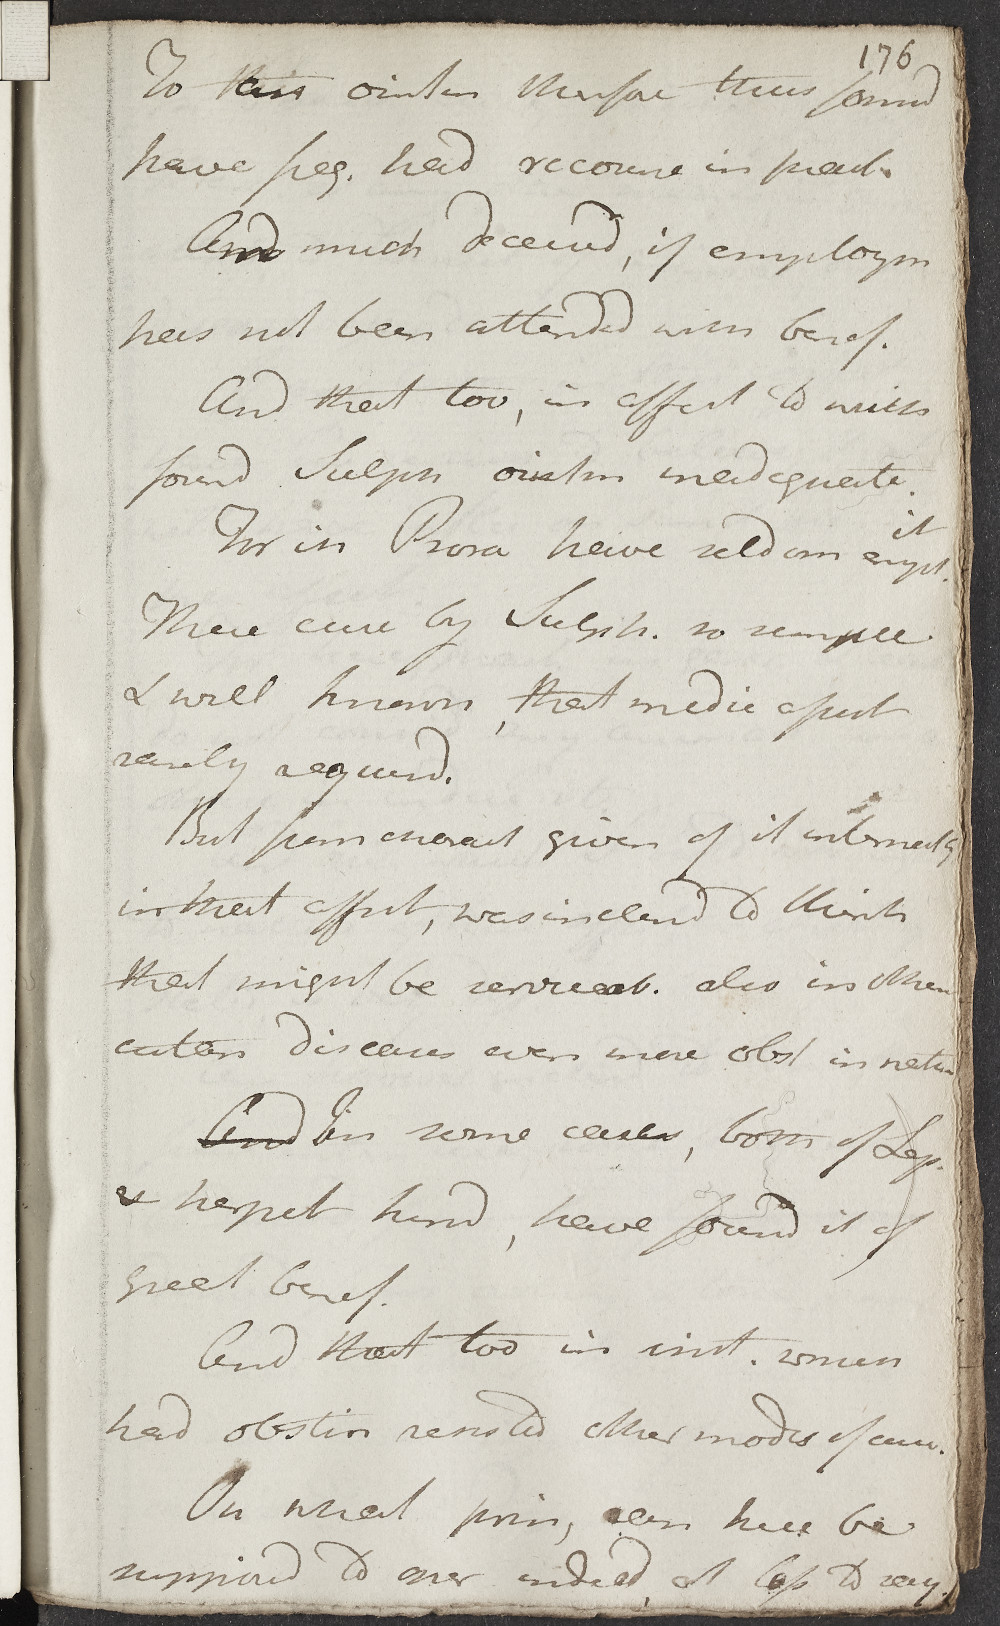 176
To this ointm therfore thus formd
have freq. had recourse in pract.
And much deceived, if employm
has not been attended with benef.
And that too, in affect to which
found Sulph ointm inadequate.
For in Psora have seldom it empl.
There cure by Sulph. so simple
& well known, that medic apert
rarely requird.
But from account given of it internally
in that affect, was inclend to think
that might be serviceab. also in other
cutan diseases even more obst in natur
And In some cases, both of Lep.
& herpet kind, have found it of
great benef.
And that too in inst. where
had obstin resisted other modes of cure.
On what prin, can here be
supposed to oper indeed, at loss to say.